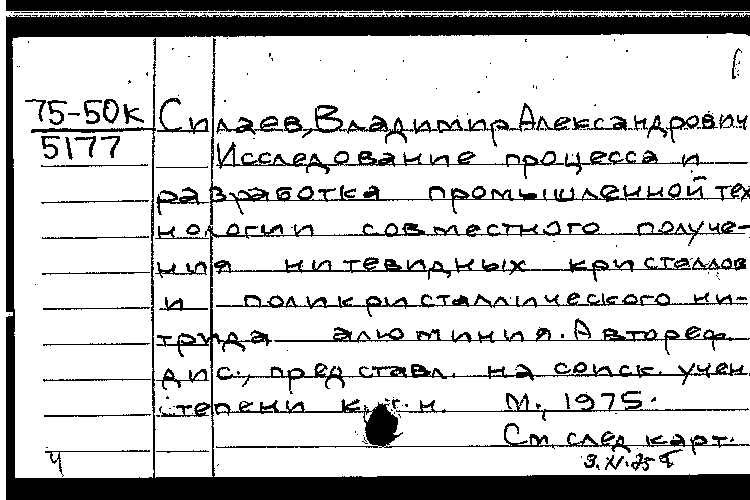 75-50к Силаев, Владимир Александрович
5177 Исследование процесса и
разработка промышленной тех
нологии совместного получе-
ния нитевидных кристаллов
и поликристаллического ни-
трида алюминия. Автореф.
дис., представл. на соиск. учен
степени к.т.н. М., 1975.
См. след карт.
Ч